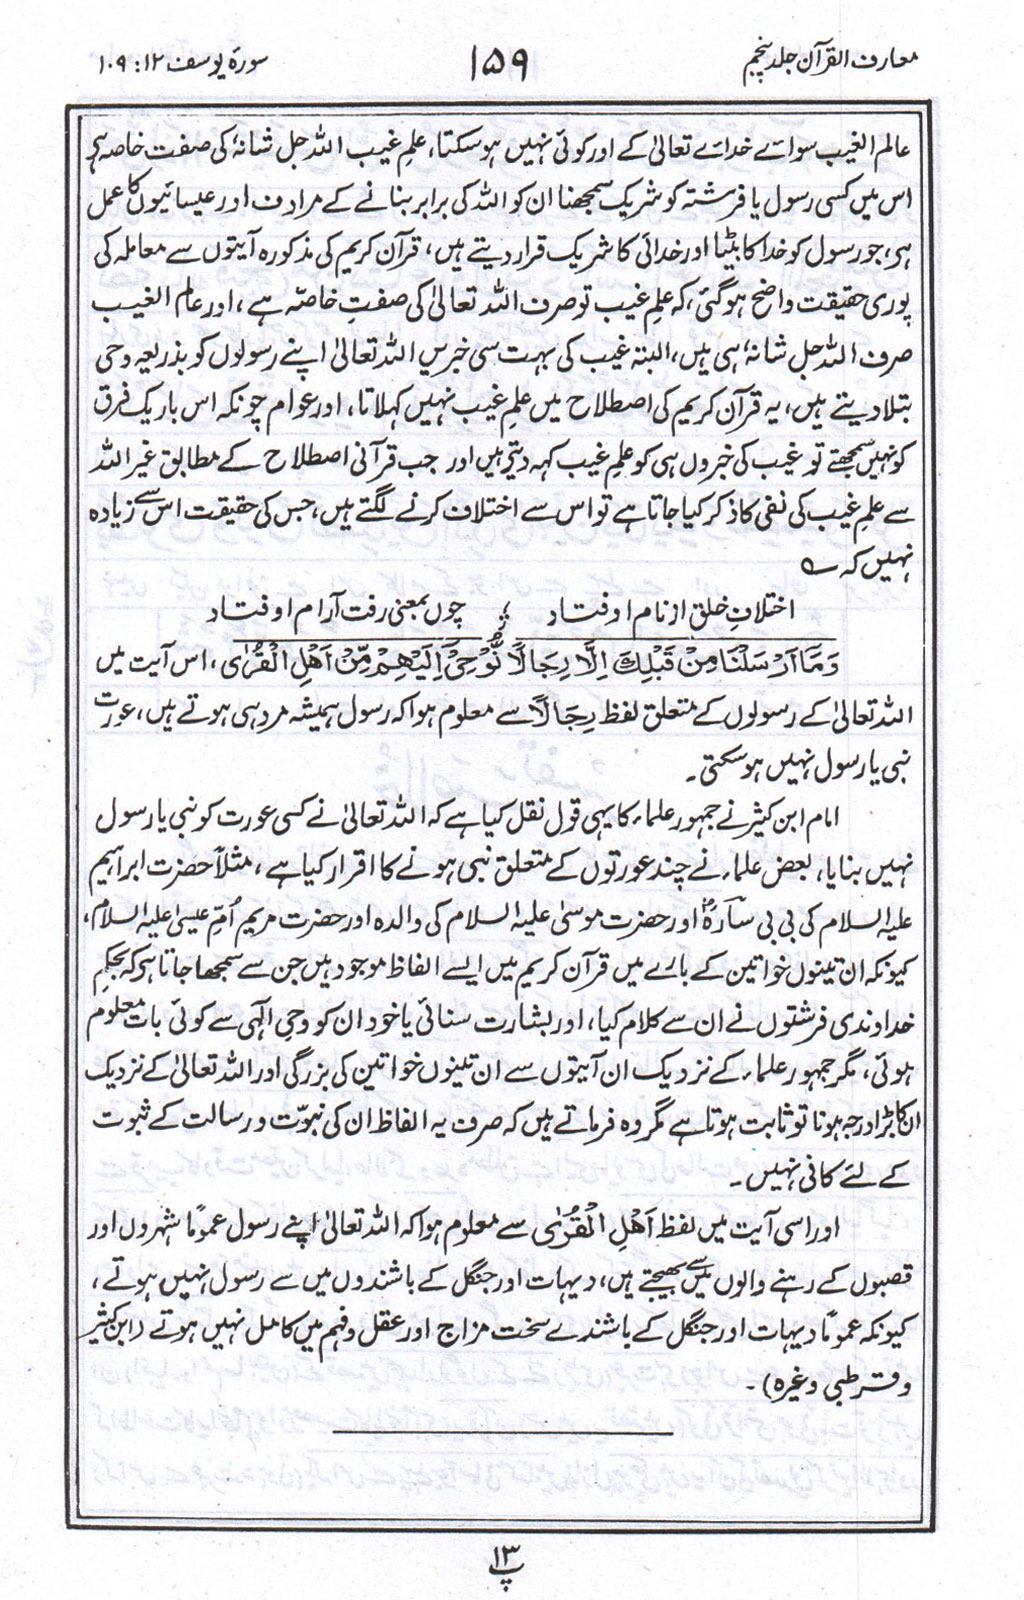 معارف القرآن جلد پنجم
۱۵۹
سورۃ یوسف ۱۲: ۱۰۹
عالم الغیب سوائے خدائے تعالیٰ کے اور کوئی نہیں ہو سکتا، علمِ غیب اللہ جل شانہٗ کی صفت خاصہ ہے
اس میں کسی رسول یا فرشتہ کو شریک سمجھنا ان کو اللہ کی برابر بنانے کے مرادف اور عیسائیوں کا عمل
ہی، جو رسول کو خدا کا بیٹا اور خدائی کا شریک قرار دیتے ہیں، قرآن کریم کی مذکورہ آیتوں سے معاملہ کی
پوری حقیقت واضح ہو گئی، کہ علمِ غیب تو صرف اللہ تعالیٰ کی صفتِ خاصّہ ہے، اور عالم الغیب
صرف اللہ جل شانہٗ ہی ہیں، البتہ غیب کی بہت سی خبریں اللہ تعالیٰ اپنے رسولوں کو بذریعہ وحی
بتلا دیتے ہیں، یہ قرآن کریم کی اصطلاح میں علمِ غیب نہیں کہلاتا، اور عوام چونکہ اس باریک فرق
کو نہیں سمجھتے تو غیب کی خبروں ہی کو علمِ غیب کہہ دیتے ہیں اور جب قرآنی اصطلاح کے مطابق غیر اللہ
سے علمِ غیب کی نفی کا ذکر کیا جاتا ہے تو اس سے اختلاف کرنے لگتے ہیں، جس کی حقیقت اس سے زیادہ
نہیں کہ ؎
اختلافِ خلق از نام اوفتاد ؛ چوں بمعنی رفت آرام اوفتاد
وَمَآ اَرْسَلْنَا مِنْ قَبْلِكَ اِلَّا رِجَالًا نُّوْحِیْٓ اِلَیْهِمْ مِّنْ اَهْلِ الْقُرٰی، اس آیت میں
اللہ تعالیٰ کے رسولوں کے متعلق لفظ رِجَالًا سے معلوم ہوا کہ رسول ہمیشہ مرد ہی ہوتے ہیں، عورت
نبی یا رسول نہیں ہو سکتی۔
امام ابن کثیرؒ نے جمہور علماء کا یہی قول نقل کیا ہے کہ اللہ تعالیٰ نے کسی عورت کو نبی یا رسول
نہیں بنایا، بعض علماء نے چند عورتوں کے متعلق نبی ہونے کا اقرار کیا ہے، مثلاً حضرت ابراہیم
علیہ السلام کی بی بی سارہؓ اور حضرت موسیٰ علیہ السلام کی والدہ اور حضرت مریم اُمِّ عیسیٰ علیہ السلام،
کیونکہ ان تینوں خواتین کے بارے میں قرآن کریم میں ایسے الفاظ موجود ہیں جن سے سمجھا جاتا ہی کہ بحکمِ
خداوندی فرشتوں نے ان سے کلام کیا، اور بشارت سنائی یا خود ان کو وحی الٰہی سے کوئی بات معلوم
ہوئی، مگر جمہور علماء کے نزدیک ان آیتوں سے ان تینوں خواتین کی بزرگی اور اللہ تعالیٰ کے نزدیک
ان کا بڑا درجہ ہونا تو ثابت ہوتا ہے مگر وہ فرماتے ہیں کہ صرف یہ الفاظ ان کی نبوّت و رسالت کے ثبوت
کے لئے کافی نہیں۔
اور اسی آیت میں لفظ اَهْلِ الْقُرٰی سے معلوم ہوا کہ اللہ تعالیٰ اپنے رسول عموماً شہروں اور
قصبوں کے رہنے والوں میں سے بھیجتے ہیں، دیہات اور جنگل کے باشندوں میں سے رسول نہیں ہوتے،
کیونکہ عموماً دیہات اور جنگل کے باشندے سخت مزاج اور عقل و فہم میں کامل نہیں ہوتے (ابن کثیر
و قرطبی وغیرہ)۔
پ ۱۳